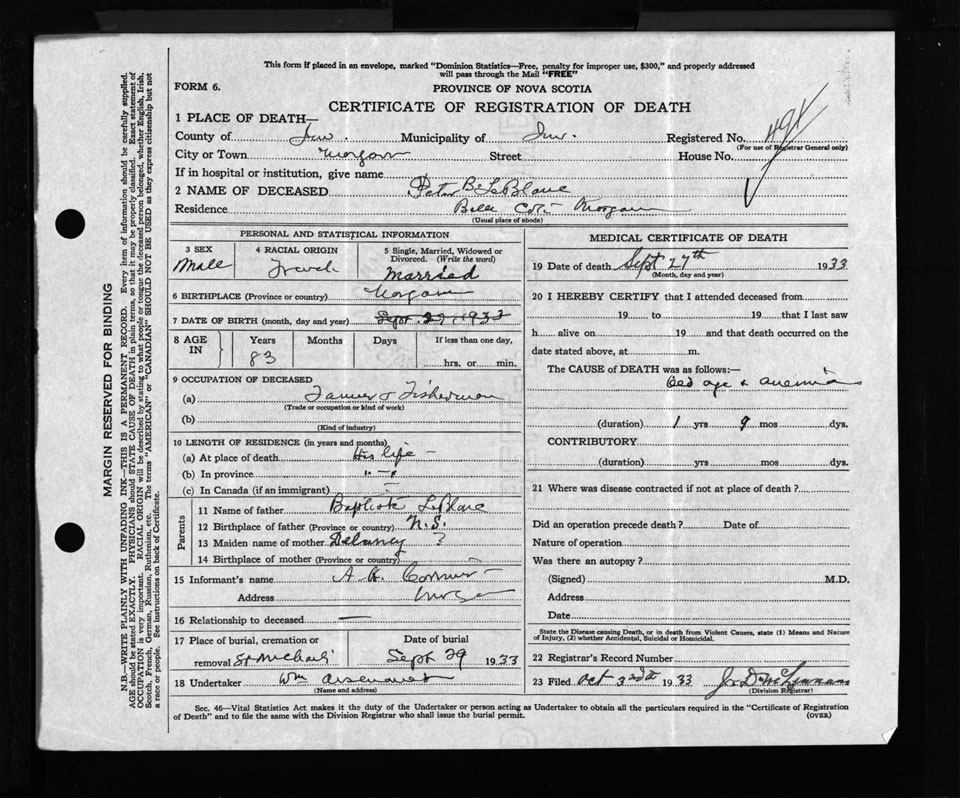 This form if placed in an envelope, marked "Dominion Statistics—Free, penalty for improper use, $300," and properly addressed
will pass through the Mail "FREE"
FORM 6.
PROVINCE OF NOVA SCOTIA
CERTIFICATE OF REGISTRATION OF DEATH
1 PLACE OF DEATH—
County of Inv. Municipality of Inv. Registered No.
(For use of Registrar General only)
City or Town Street House No.
If in hospital or institution, give name
2 NAME OF DECEASED Peter B. LeBlanc
Residence Belle Cote
(Usual place of abode)
PERSONAL AND STATISTICAL INFORMATION
3 SEX
Male
4 RACIAL ORIGIN
French
5 Single, Married, Widowed or
Divorced. (Write the word)
Married
6 BIRTHPLACE (Province or country)
7 DATE OF BIRTH (month, day and year) Sept. 29, 1933
8 AGE
IN
Years
83
Months
Days
If less than one day,
hrs. or min.
9 OCCUPATION OF DECEASED
(a) Farmer & Fisherman
(Trade or occupation or kind of work)
(b)
(Kind of industry)
10 LENGTH OF RESIDENCE (in years and months)
(a) At place of death His life —
(b) In province
(c) In Canada (if an immigrant)
Parents
11 Name of father Baptiste LeBlanc
12 Birthplace of father (Province or country) N.S.
13 Maiden name of mother Delaney ?
14 Birthplace of mother (Province or country)
15 Informant's name
Address
16 Relationship to deceased —
17 Place of burial, cremation or
removal St Michael's
Date of burial
Sept 29 1933
18 Undertaker Wm Arsenault
(Name and address)
MEDICAL CERTIFICATE OF DEATH
19 Date of death Sept 27th 1933
(Month, day and year)
20 I HEREBY CERTIFY that I attended deceased from
19 to 19 that I last saw
h alive on 19 and that death occurred on the
date stated above, at m.
The CAUSE of DEATH was as follows:—
Old age & anemia
(duration) 1 yrs 9 mos dys.
CONTRIBUTORY
(duration) yrs mos dys.
21 Where was disease contracted if not at place of death?
Did an operation precede death? Date of
Nature of operation
Was there an autopsy?
(Signed) M.D.
Address
Date
State the Disease causing Death, or in death from Violent Causes, state (1) Means and Nature
of Injury, (2) whether Accidental, Suicidal or Homicidal.
22 Registrar's Record Number
23 Filed Oct 1933
(Division Registrar)
Sec. 46—Vital Statistics Act makes it the duty of the Undertaker or person acting as Undertaker to obtain all the particulars required in the "Certificate of Registration
of Death" and to file the same with the Division Registrar who shall issue the burial permit.
(OVER)
MARGIN RESERVED FOR BINDING
N.B.—WRITE PLAINLY WITH UNFADING INK—THIS IS A PERMANENT RECORD. Every item of information should be carefully supplied.
AGE should be stated EXACTLY. PHYSICIANS should STATE CAUSE OF DEATH in plain terms, so that it may be properly classified. Exact statement of
OCCUPATION is very important. RACIAL ORIGIN will be described by stating to what people or tongue the deceased person belonged, whether English, Irish,
Scotch, French, German, Russian, Ruthenian, etc. The terms "AMERICAN" or "CANADIAN" SHOULD NOT BE USED as they express citizenship but not
a race or people. See instructions on back of Certificate.